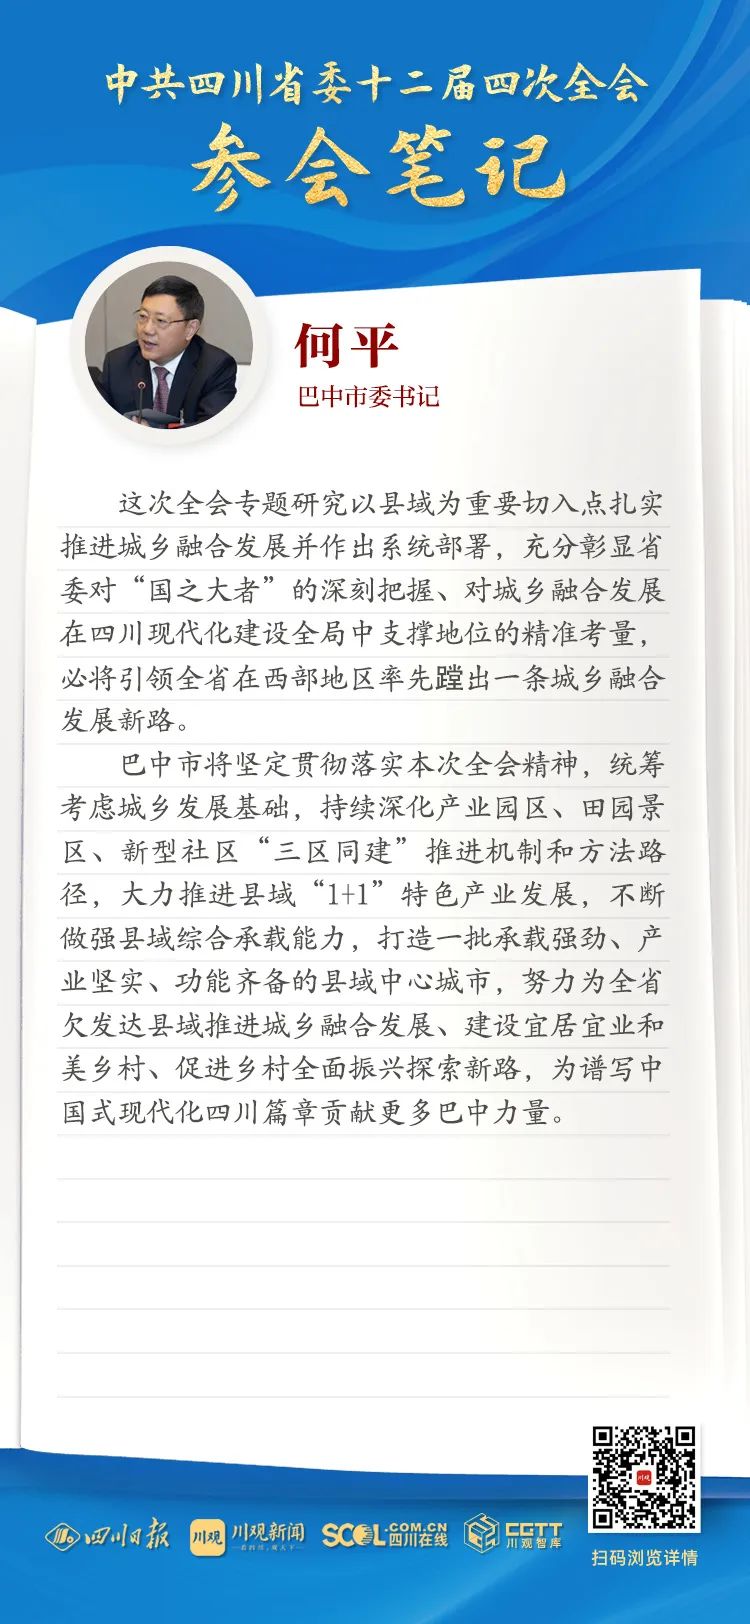 中共四川省委十二届四次全会
参会笔记
何平
巴中市委书记
这次全会专题研究以县域为重要切入点扎实
推进城乡融合发展并作出系统部署，充分彰显省
委对“国之大者”的深刻把握、对城乡融合发展
在四川现代化建设全局中支撑地位的精准考量，
必将引领全省在西部地区率先蹚出一条城乡融合
发展新路。
巴中市将坚定贯彻落实本次全会精神，统筹
考虑城乡发展基础，持续深化产业园区、田园景
区、新型社区“三区同建”推进机制和方法路
径，大力推进县域“1+1”特色产业发展，不断
做强县域综合承载能力，打造一批承载强劲、产
业坚实、功能齐备的县域中心城市，努力为全省
欠发达县域推进城乡融合发展、建设宜居宜业和
美乡村、促进乡村全面振兴探索新路，为谱写中
国式现代化四川篇章贡献更多巴中力量。
川观
四川日报
川观 川观新闻
SCOL .COM.CN 四川在线
CGTT 川观智库
扫码浏览详情